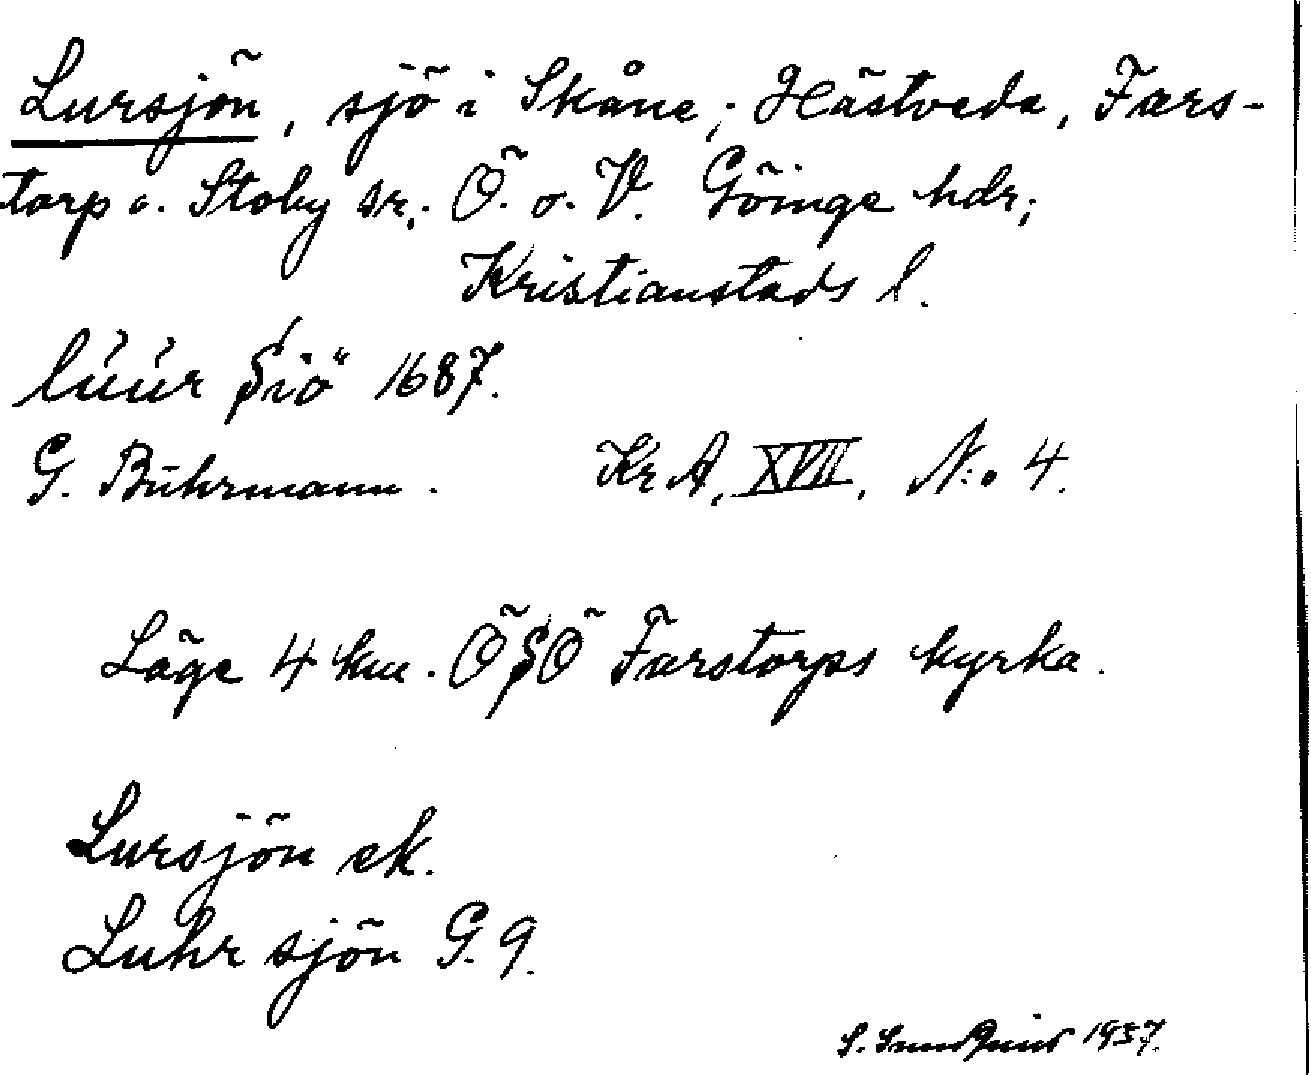 Lursjön, sjö i Skåne; Hästveda, Fars-
torp o. Stoby sr; Ö. o. V. Göinge hdr;
Kristianstads l.
lúúr Siö 1687.
G. Buhrmann. KrA, XVII, N:o 4.
Läge 4 km. ÖSÖ Farstorps kyrka.
Lursjön ek.
Luhr sjön G. 9.
S. 1937.